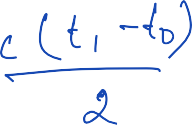 c (t₁ - t₀)
2